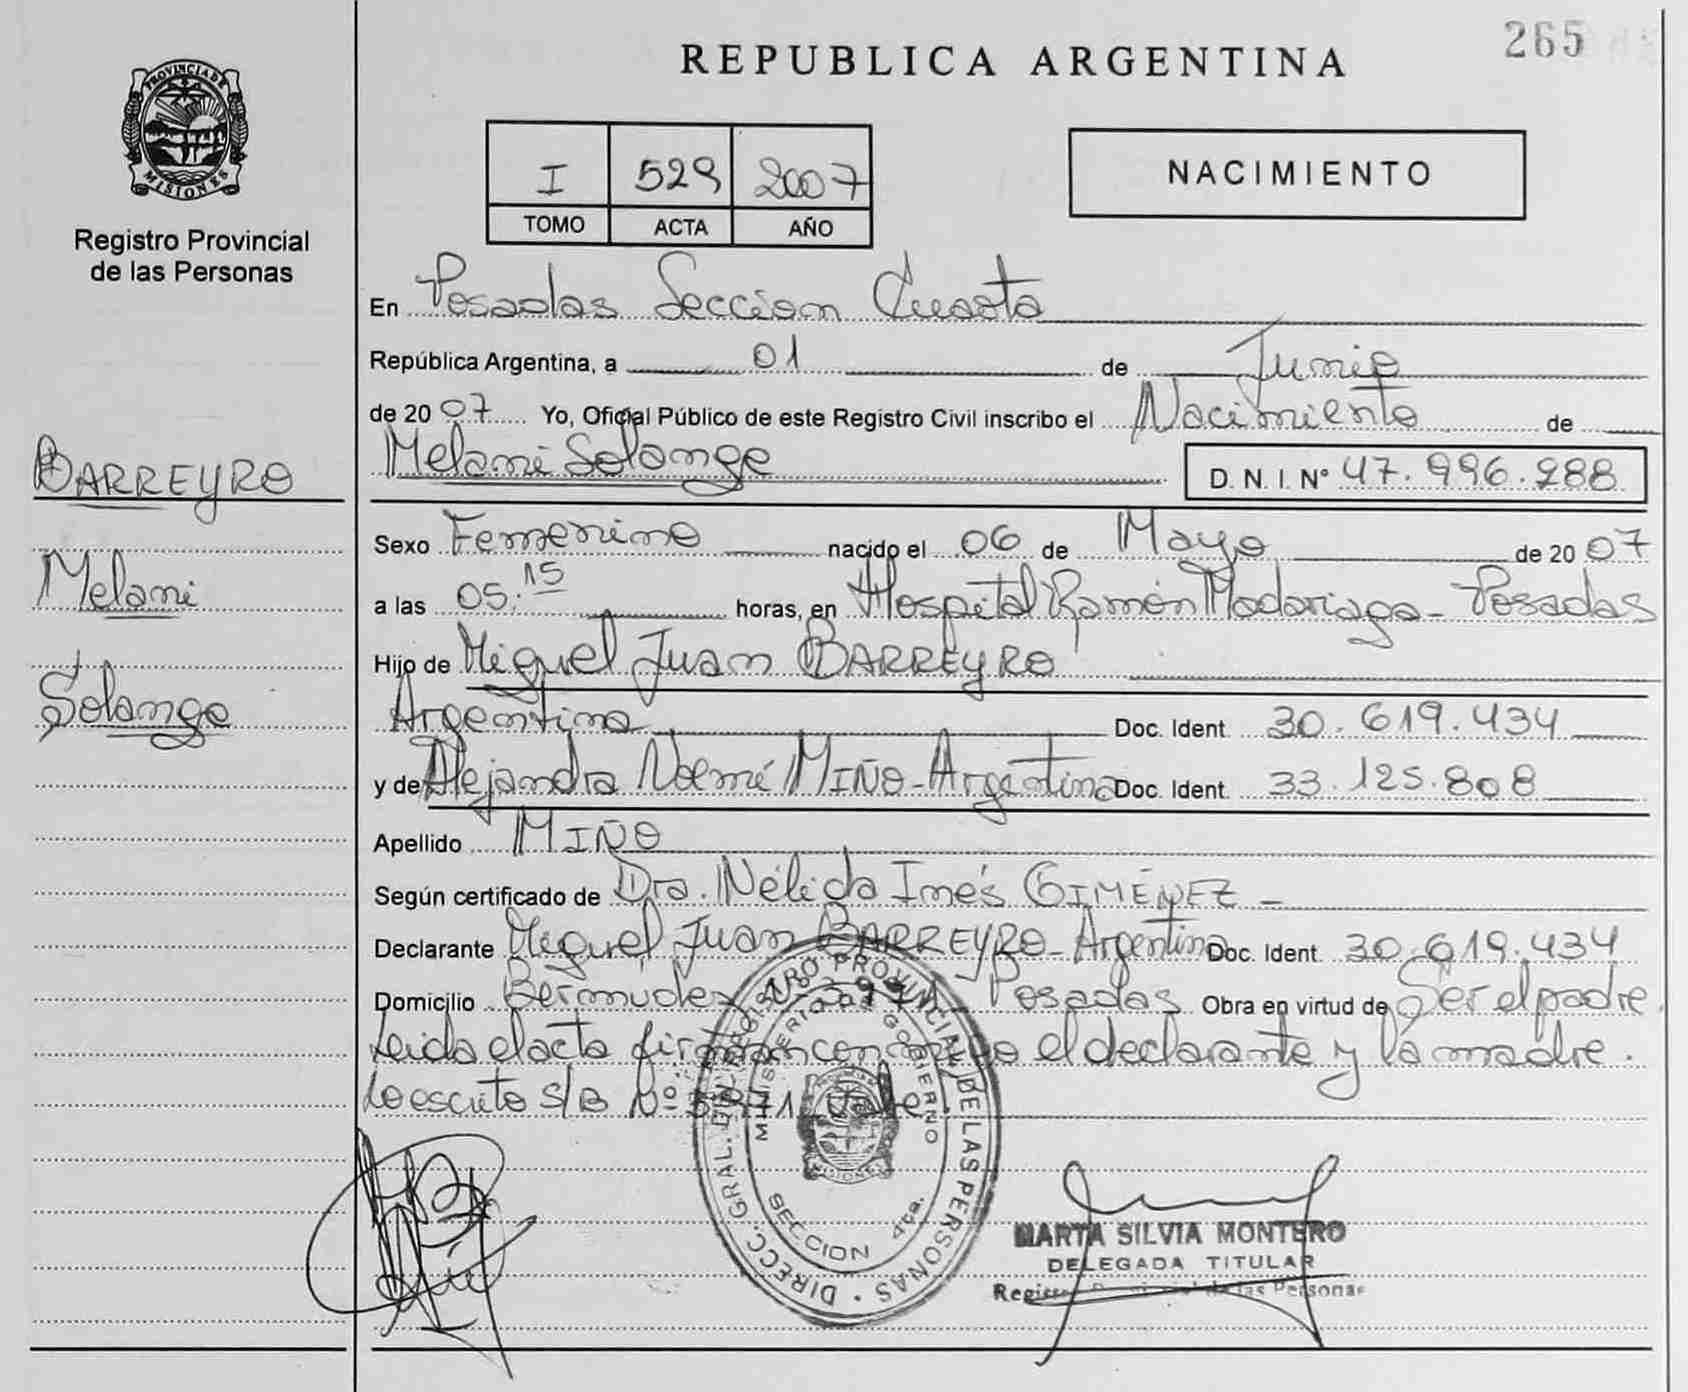 265
REPUBLICA ARGENTINA
PROVINCIA DE
MISIONES
Registro Provincial
de las Personas
I 529 2007
TOMO ACTA AÑO
NACIMIENTO
En Posadas Seccion Cuarta
República Argentina, a 01 de Junio
de 2007 Yo, Oficial Público de este Registro Civil inscribo el Nacimiento de
Melani Solange
D. N. I. Nº 47.996.288
BARREYRO
Melani
Solange
Sexo Femenino nacido el 06 de Mayo de 2007
a las 05:15 horas, en Hospital Ramón Madariaga - Posadas
Hijo de Miguel Juan BARREYRO
Argentina Doc. Ident 30.619.434
y de Alejandra Noemí MIÑO - Argentina Doc. Ident. 33.125.808
Apellido MIÑO
Según certificado de Dra. Nélida Inés GIMÉNEZ -
Declarante Miguel Juan BARREYRO - Argentina Doc. Ident. 30.619.434
Domicilio Bermudez Posadas Obra en virtud de Ser el padre.
Leida el acta firman conmigo el declarante y la madre.
Lo escrito s/B Nº 5971 Vale.
DIRECC. GRAL. DEL REGISTRO PROVINCIAL DE LAS PERSONAS
MINISTERIO DE GOBIERNO
MISIONES
SECCION 4ta.
MARTA SILVIA MONTERO
DELEGADA TITULAR
Registro Provincial de las Personas